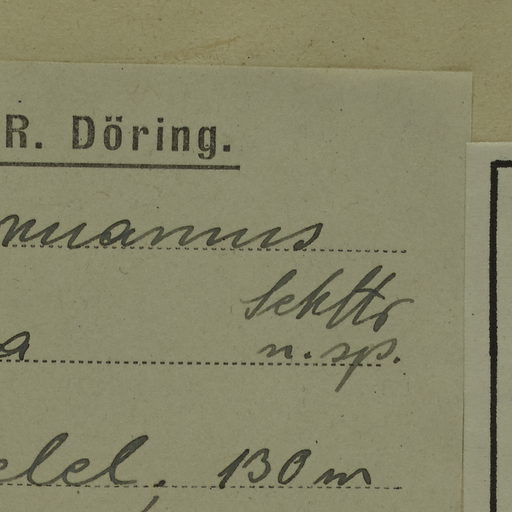 R. Döring.
nuannus
Schltr
a
n. sp.
elel, 130 m